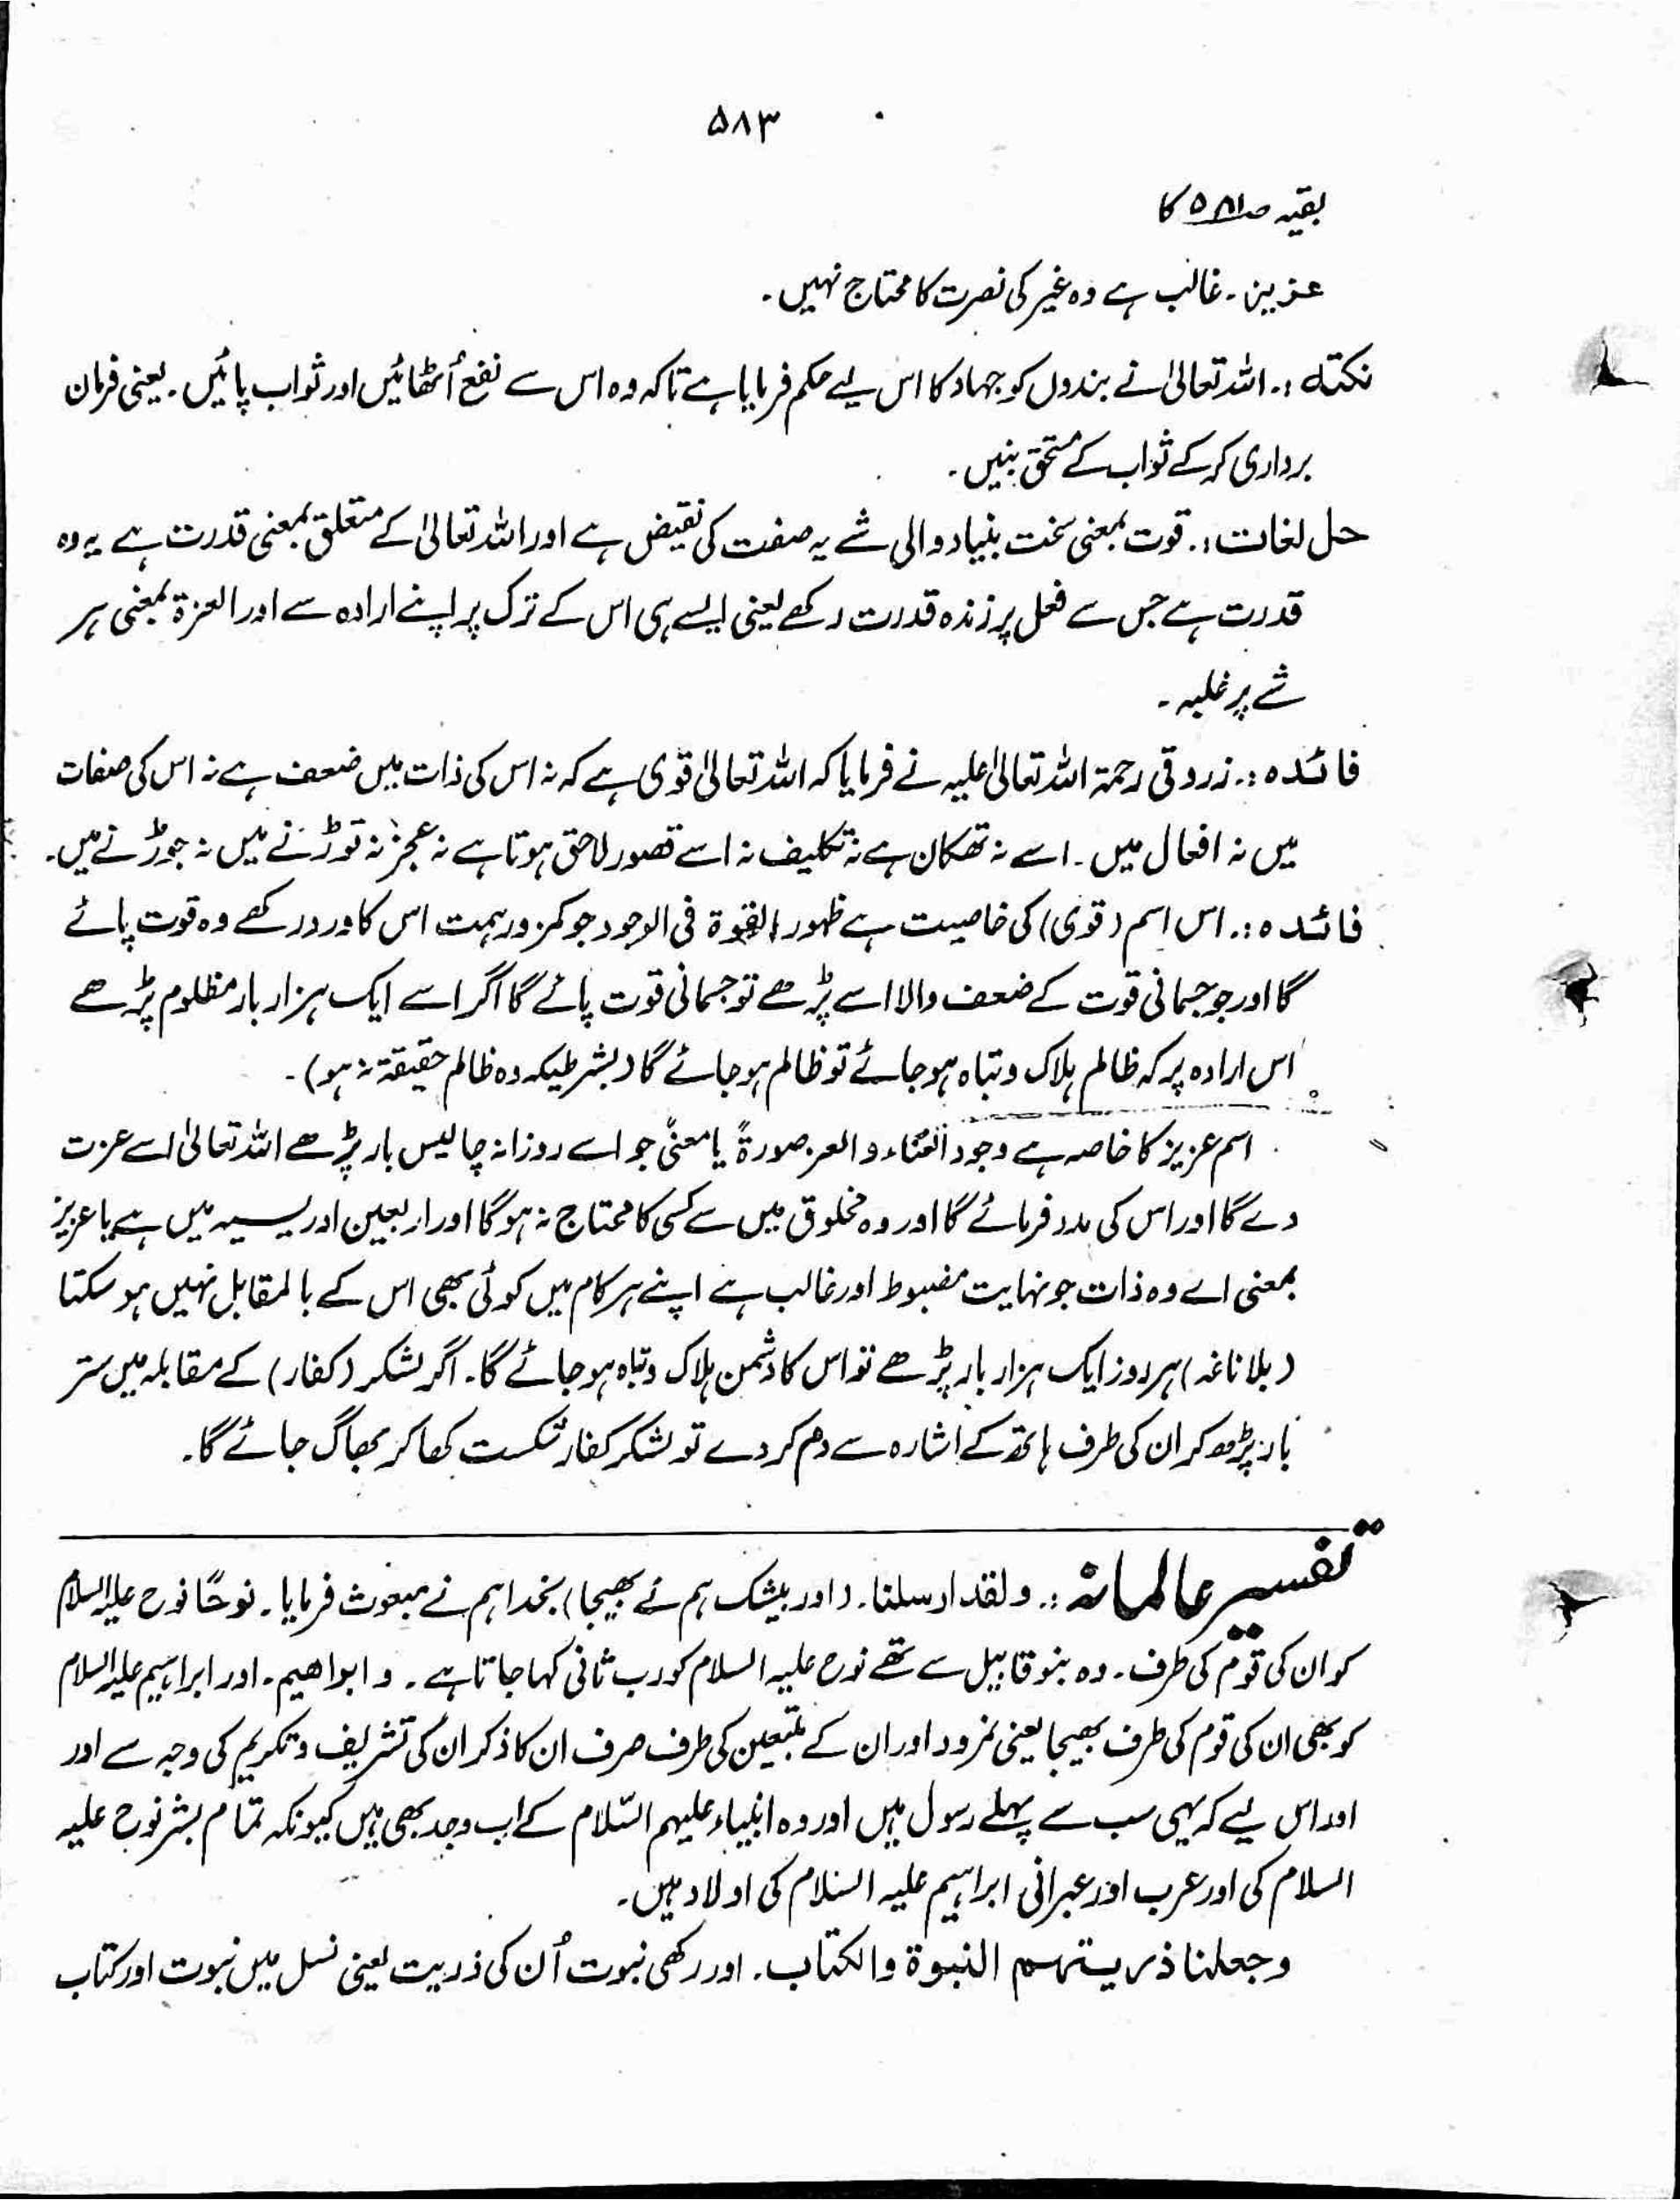 ۵۸۳
بقیہ صا۵۸ کا
عزیز۔ غالب ہے وہ غیر کی نصرت کا محتاج نہیں۔
نکتہ :۔ اللہ تعالیٰ نے بندوں کو جہاد کا اس لیے حکم فرمایا ہے تاکہ وہ اس سے نفع اُٹھائیں اور ثواب پائیں۔ یعنی فرمان
برداری کر کے ثواب کے مستحق بنیں۔
حل لغات :۔ قوت بمعنی سخت بنیاد والی شے یہ صفت کی نقیض ہے اور اللہ تعالیٰ کے متعلق بمعنی قدرت ہے یہ وہ
قدرت ہے جس سے فعل پر زندہ قدرت رکھے یعنی ایسے ہی اس کے ترک پر اپنے ارادہ سے اور العزۃ بمعنی ہر
شے پر غلبہ۔
فائدہ :۔ زروقی رحمۃ اللہ تعالیٰ علیہ نے فرمایا کہ اللہ تعالیٰ قوی ہے کہ نہ اس کی ذات میں ضعف ہے نہ اس کی صفات
میں نہ افعال میں۔ اسے نہ تھکان ہے نہ تکلیف نہ اسے قصور لاحق ہوتا ہے نہ عجز نہ توڑنے میں نہ جوڑنے میں۔
فائدہ :۔ اس اسم (قوی) کی خاصیت ہے ظہور القوۃ فی الوجود جو کمزور ہمت اس کا ورد رکھے وہ قوت پائے
گا اور جو جسمانی قوت کے ضعف والا اسے پڑھے تو جسمانی قوت پائے گا اگر اسے ایک ہزار بار مظلوم پڑھے
اس ارادہ پر کہ ظالم ہلاک و تباہ ہو جائے تو ظالم ہو جائے گا (بشرطیکہ وہ ظالم حقیقۃ نہ ہو)۔
اسم عزیز کا خاصہ ہے وجود الغناء و العز صورۃً یا معنًی جو اسے روزانہ چالیس بار پڑھے اللہ تعالیٰ اسے عزت
دے گا اور اس کی مدد فرمائے گا اور وہ مخلوق میں سے کسی کا محتاج نہ ہوگا اور اربعین ادریسیہ میں ہے یا عزیز
بمعنی اے وہ ذات جو نہایت مضبوط اور غالب ہے اپنے ہر کام میں کوئی بھی اس کے بالمقابل نہیں ہو سکتا
(بلا ناغہ) ہر روز ایک ہزار بار پڑھے تو اس کا دشمن ہلاک و تباہ ہو جائے گا۔ اگر لشکر (کفار) کے مقابلہ میں ستر
بار پڑھ کر ان کی طرف ہاتھ کے اشارہ سے دم کر دے تو لشکر کفار شکست کھا کر بھاگ جائے گا۔
تفسیر عالمانہ :۔ ولقد ارسلنا۔ (اور بیشک ہم نے بھیجا) بخدا ہم نے مبعوث فرمایا۔ نوحًا نوح علیہ السلام
کو ان کی قوم کی طرف۔ وہ بنو قابیل سے تھے نوح علیہ السلام کو رب ثانی کہا جاتا ہے۔ و ابراھیم۔ اور ابراہیم علیہ السلام
کو بھی ان کی قوم کی طرف بھیجا یعنی نمرود اور ان کے متبعین کی طرف صرف ان کا ذکر ان کی تشریف و تکریم کی وجہ سے اور
اور اس لیے کہ یہی سب سے پہلے رسول ہیں اور وہ انبیاء علیہم السّلام کے اب وجد بھی ہیں کیونکہ تمام بشر نوح علیہ
السلام کی اور عرب اور عبرانی ابراہیم علیہ السلام کی اولاد ہیں۔
وجعلنا ذریتہم النبوۃ والکتاب۔ اور رکھی نبوت اُن کی ذریت یعنی نسل میں نبوت اور کتاب